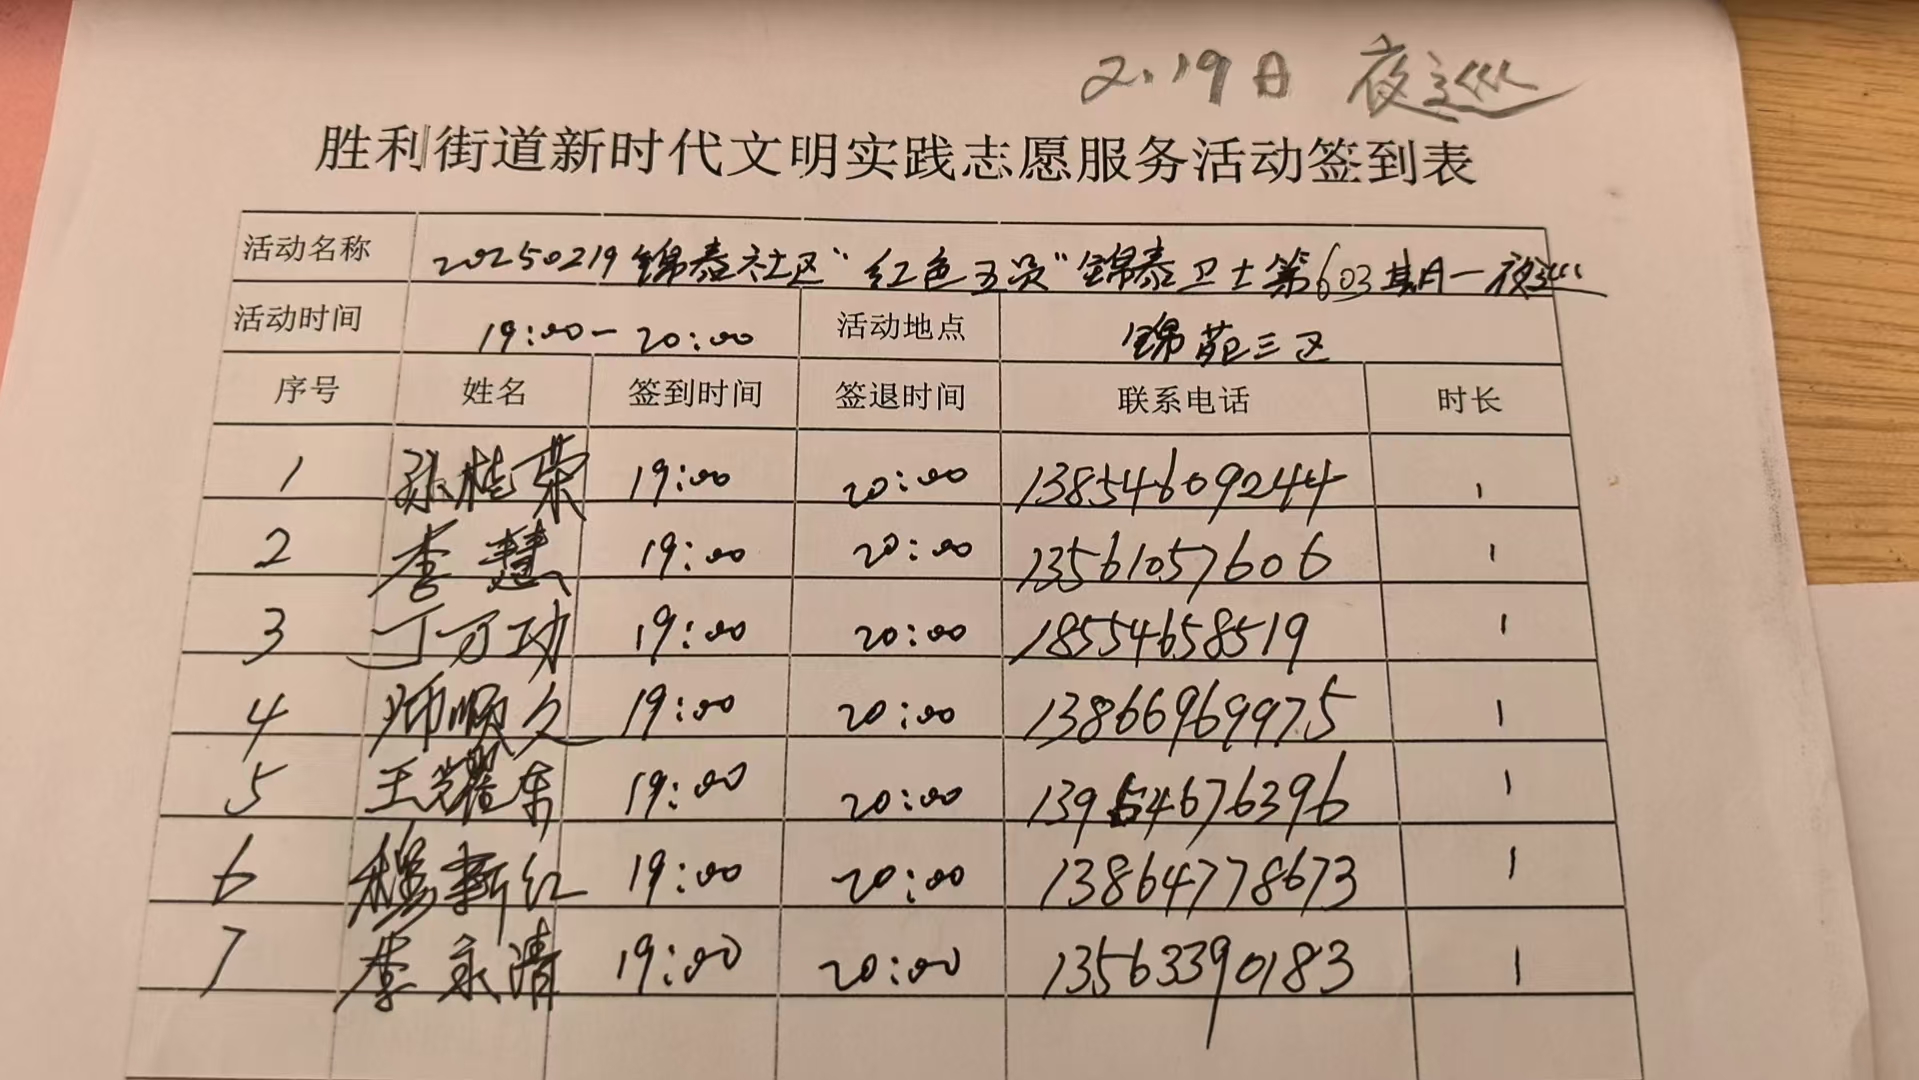 2.19日 夜巡
胜利街道新时代文明实践志愿服务活动签到表
活动名称 20250219锦泰社区“红色五员”锦泰卫士第603期一夜巡
活动时间 19:00-20:00 活动地点 锦苑三区
序号 姓名 签到时间 签退时间 联系电话 时长
1 孙桂荣 19:00 20:00 13854609244 1
2 李慧 19:00 20:00 13561057606 1
3 丁万功 19:00 20:00 18554658519 1
4 师顺久 19:00 20:00 13866969975 1
5 王耀东 19:00 20:00 13954676396 1
6 穆新红 19:00 20:00 13864778673 1
7 李永清 19:00 20:00 13563390183 1